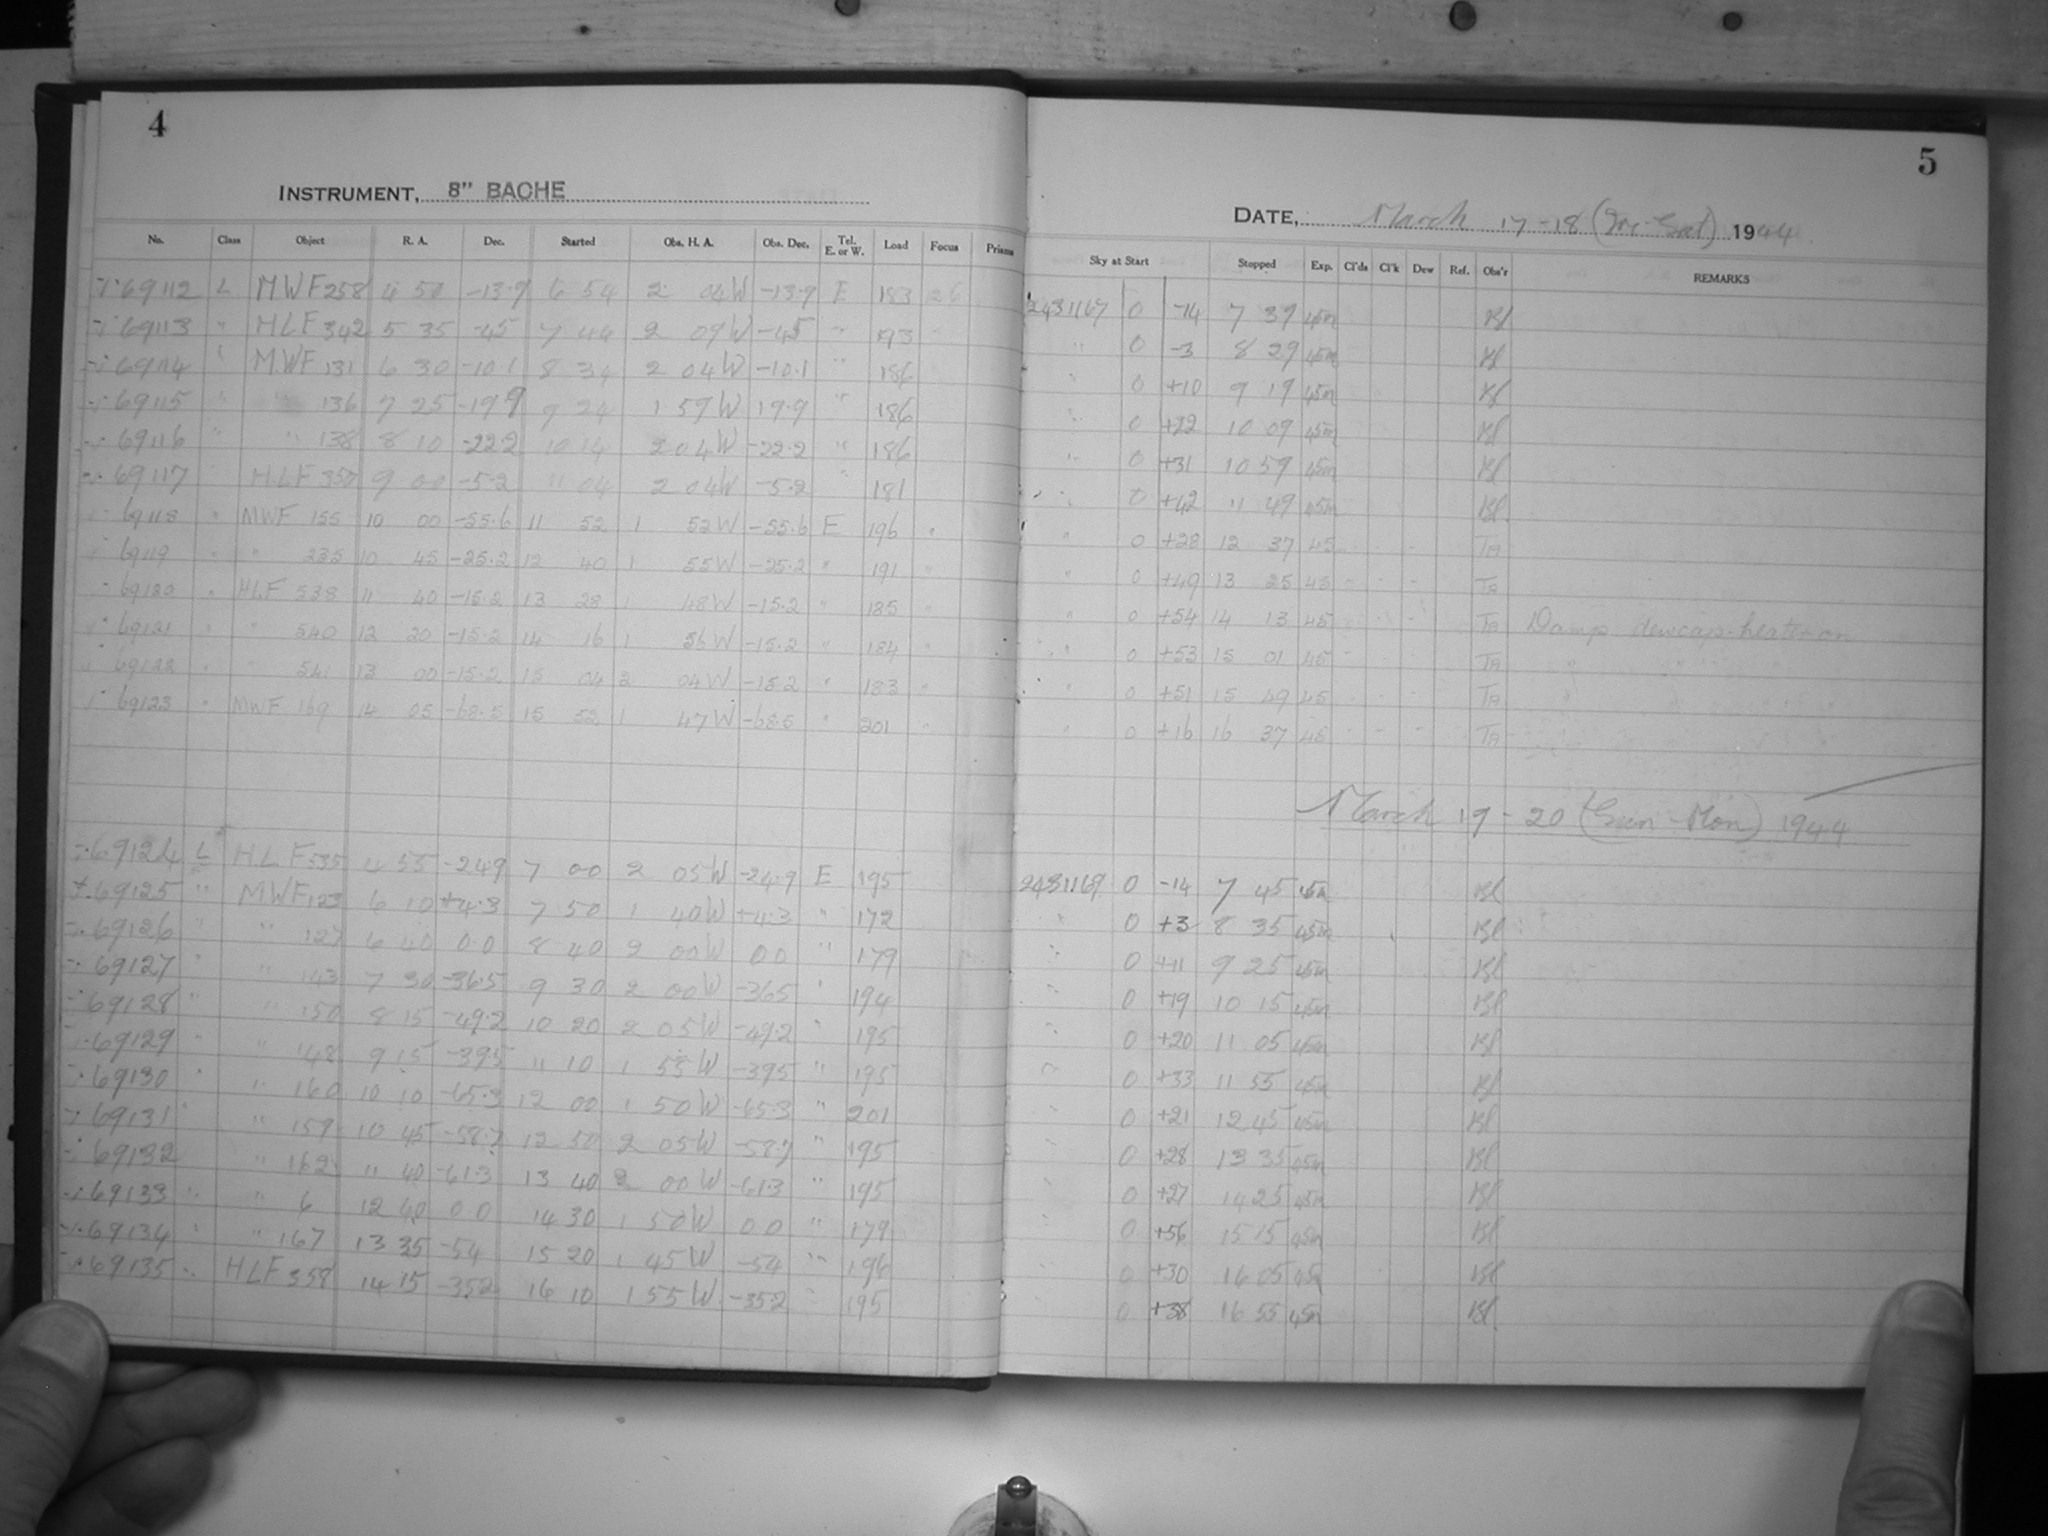 4
INSTRUMENT, 8" BACHE
No. Class Object R. A. Dec. Started Obs. H. A. Obs. Dec. Tel. E. or W. Load Focus Prisms
69112 L MWF 258 4 50 -13.9 6 54 2 04W -13.9 E 183 26
69113 " HLF 342 5 35 -45 7 44 2 09W -45 " 193
69114 " MWF 131 6 30 -10.1 8 34 2 04W -10.1 " 186
69115 " 136 7 25 -19.9 9 24 1 59W 19.9 " 186
69116 " " 138 8 10 -22.2 10 14 2 04W -22.2 " 186
69117 HLF 350 9 00 -5.2 11 04 2 04W -5.2 " 181
69118 " MWF 155 10 00 -55.6 11 52 1 52W -55.6 E 196 "
69119 " " 235 10 45 -25.2 12 40 1 55W -25.2 " 191 "
69120 " HLF 538 11 40 -15.2 13 28 1 48W -15.2 " 185 "
69121 " " 540 12 20 -15.2 14 16 1 56W -15.2 " 184 "
69122 " " 541 13 00 -15.2 15 04 2 04W -15.2 " 183 "
69123 " MWF 169 14 05 -68.5 15 52 1 47W -68.5 " 201 "
69124 L HLF 535 4 55 -24.9 7 00 2 05W -24.9 E 195
69125 " MWF 123 6 10 +4.3 7 50 1 40W +4.3 " 172
69126 " " 127 6 40 0.0 8 40 2 00W 0.0 " 179
69127 " " 143 7 30 -36.5 9 30 2 00W -36.5 " 194
69128 " " 150 8 15 -49.2 10 20 2 05W -49.2 " 195
69129 " " 148 9 15 -39.5 11 10 1 55W -39.5 " 195
69130 " " 160 10 10 -65.3 12 00 1 50W -65.3 " 201
69131 " " 159 10 45 -58.7 12 50 2 05W -58.7 " 195
69132 " 162 11 40 -61.3 13 40 2 00W -61.3 " 195
69133 " " 6 12 40 0.0 14 30 1 50W 0.0 " 179
69134 " " 167 13 35 -54 15 20 1 45W -54 " 196
69135 " HLF 358 14 15 -35.2 16 10 1 55W -35.2 " 195
5
DATE, March 17-18 (Fri-Sat) 1944
Sky at Start Stopped Exp. Cl'ds Cl'k Dew Ref. Obs'r REMARKS
2431167 0 -14 7 39 45m Bl
" 0 -3 8 29 45m Bl
" 0 +10 9 19 45m Bl
" 0 +22 10 09 45m Bl
" 0 +31 10 59 45m Bl
" 0 +42 11 49 45m Bl
" 0 +28 12 37 45 - - - Ta
" 0 +49 13 25 45 - - - Ta
" 0 +54 14 13 45 - - - Ta Damp dewcap-heater on
" 0 +53 15 01 45 - - - Ta " "
" 0 +51 15 49 45 - - - Ta " "
" 0 +16 16 37 45 - - - Ta
March 19-20 (Sun-Mon) 1944
2431169 0 -14 7 45 45m Bl
" 0 +3 8 35 45m Bl
" 0 +11 9 25 45m Bl
" 0 +19 10 15 45m Bl
" 0 +20 11 05 45m Bl
" 0 +33 11 55 45m Bl
" 0 +21 12 45 45m Bl
" 0 +28 13 35 45m Bl
" 0 +27 14 25 45m Bl
" 0 +56 15 15 45m Bl
" 0 +30 16 05 45m Bl
" 0 +38 16 55 45m Bl